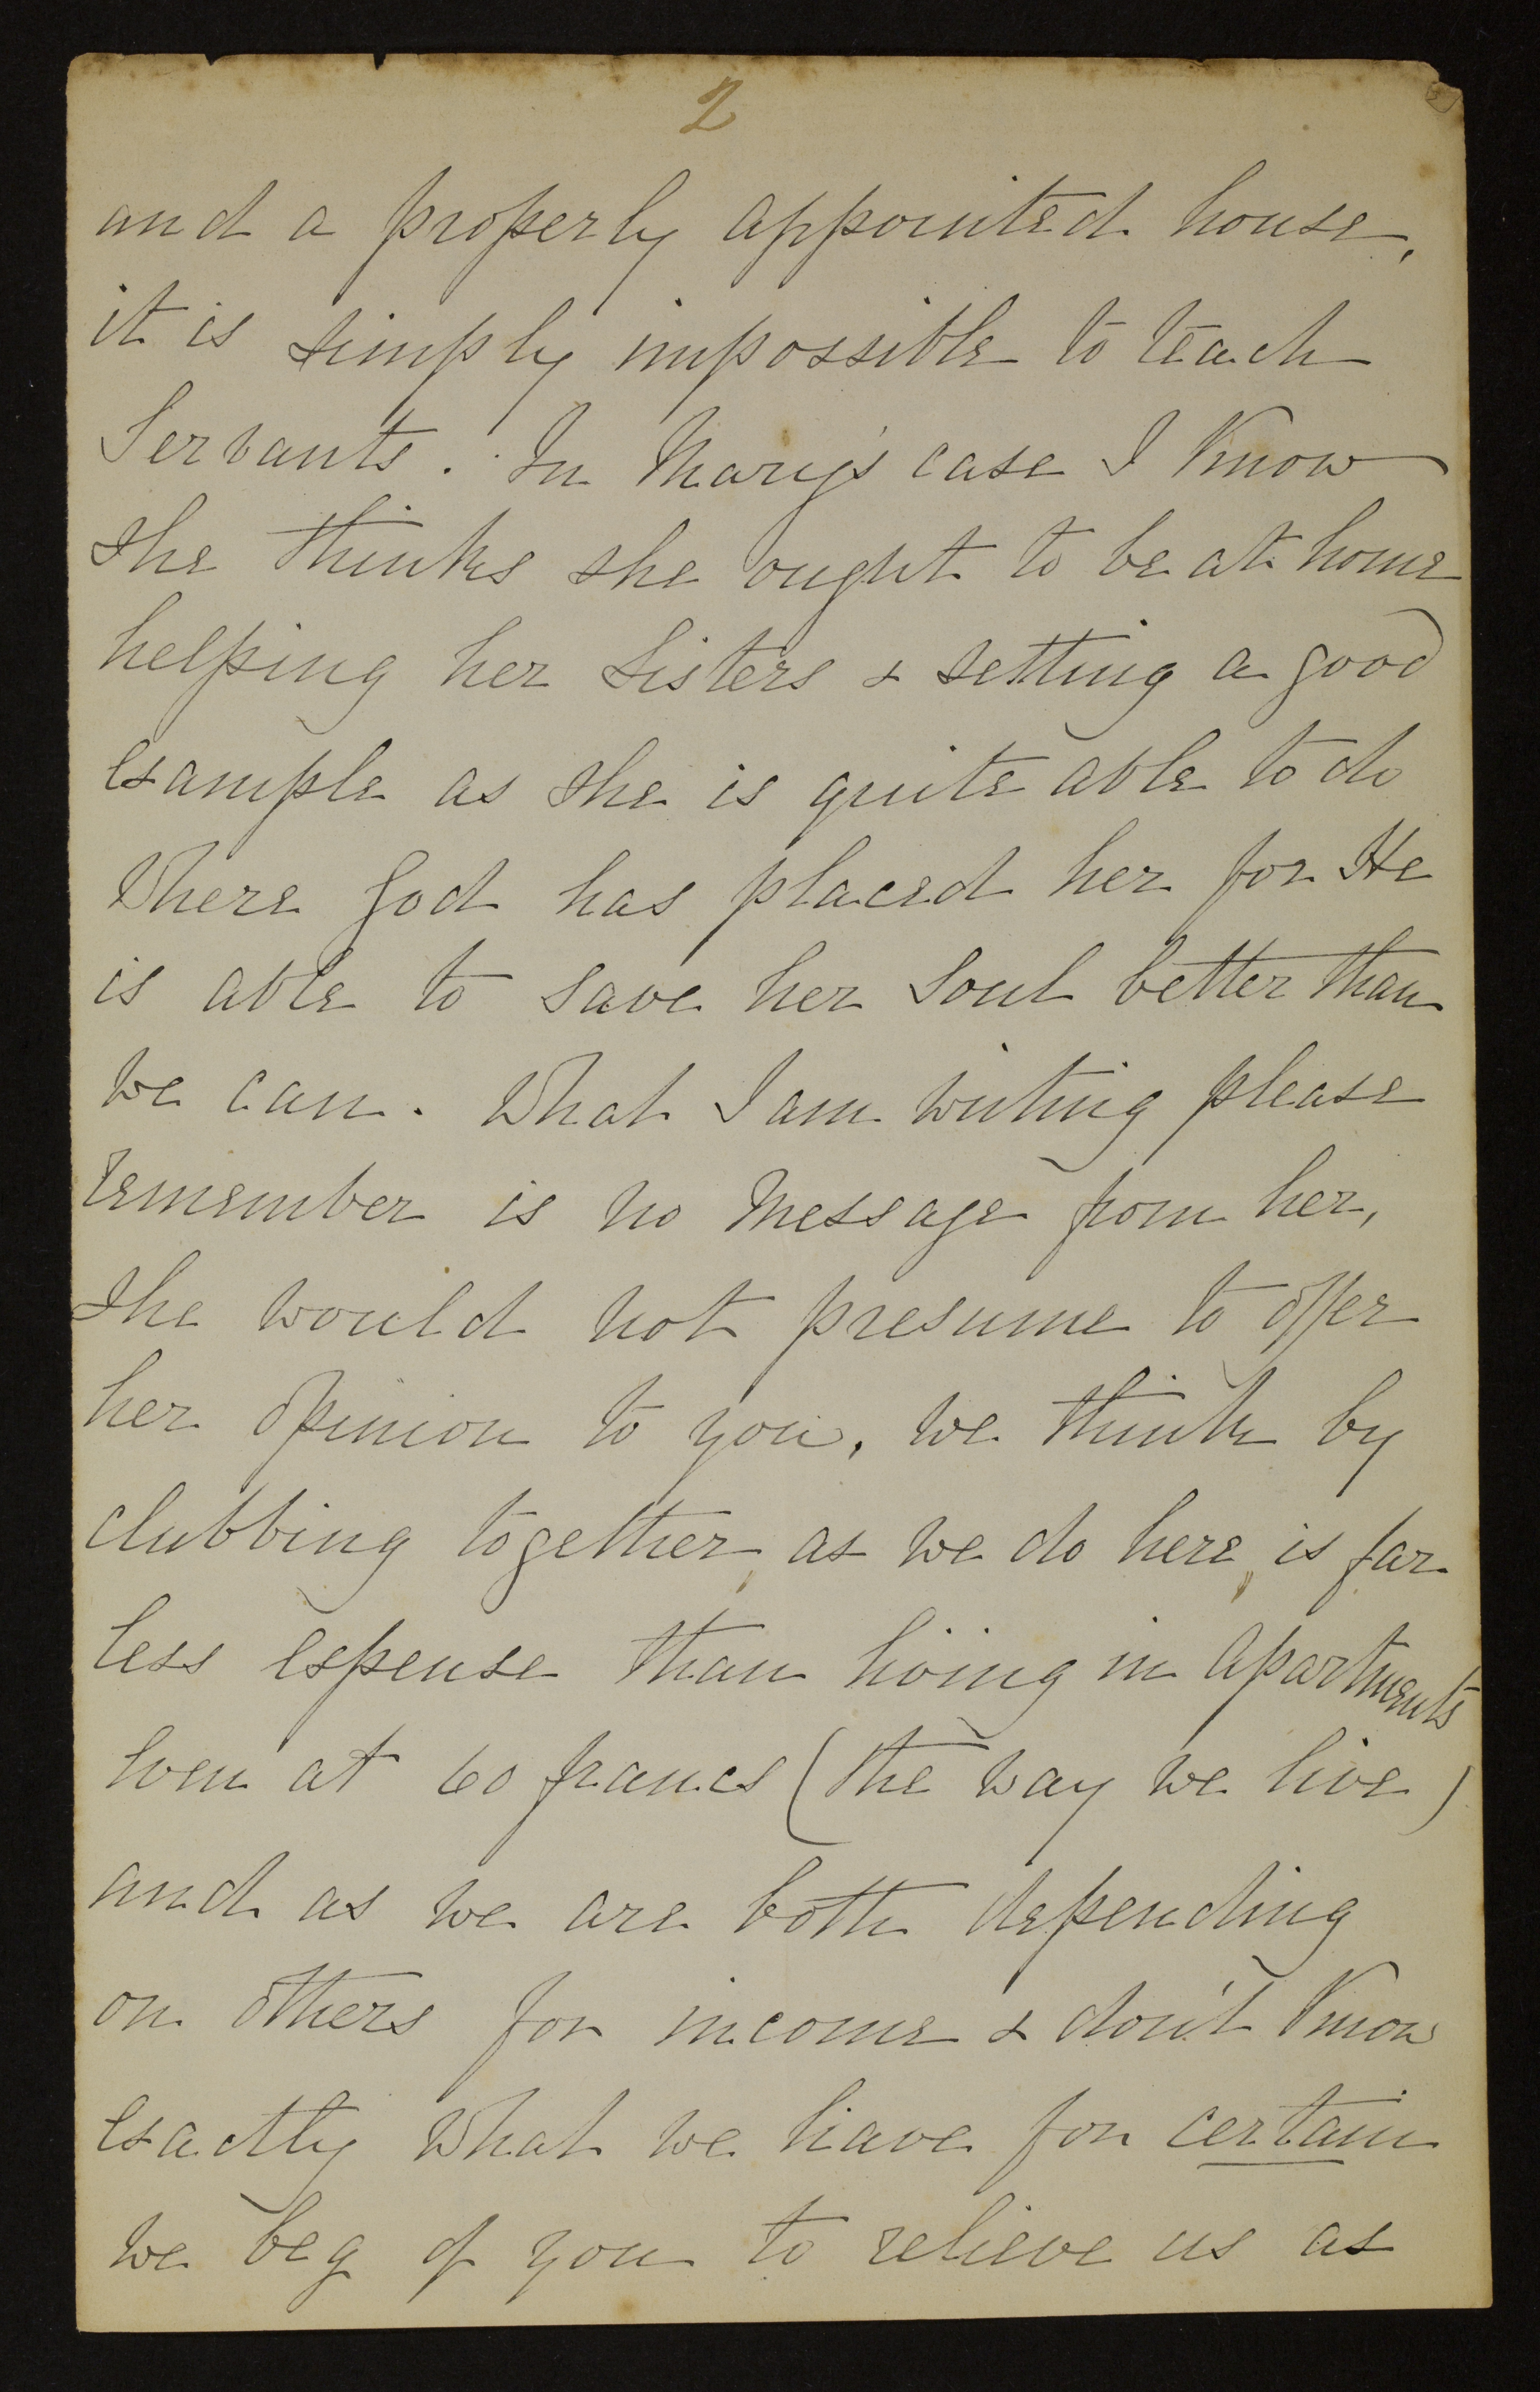 2
and a properly appointed house,
it is simply impossible to teach
Servants. In Mary's case I Know
she thinks she ought to be at home
helping her sisters & setting a good
example as she is quite able to do
Where God has placed her for He
is able to save her soul better than
we can. What I am writing please
remember is no Message from her,
she would not presume to offer
her opinion to you, we think by
clubbing together, as we do here, is far
less expense than living in apartments
even at 60 francs (the way we live)
and as we are both depending
on others for income & don't Know
exactly What we have for certain
we beg of you to relieve us as